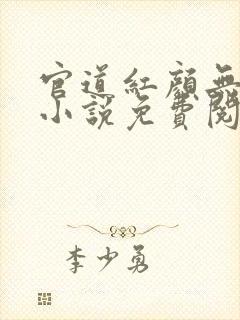 官道紅顏無
小說免費閱
李少勇